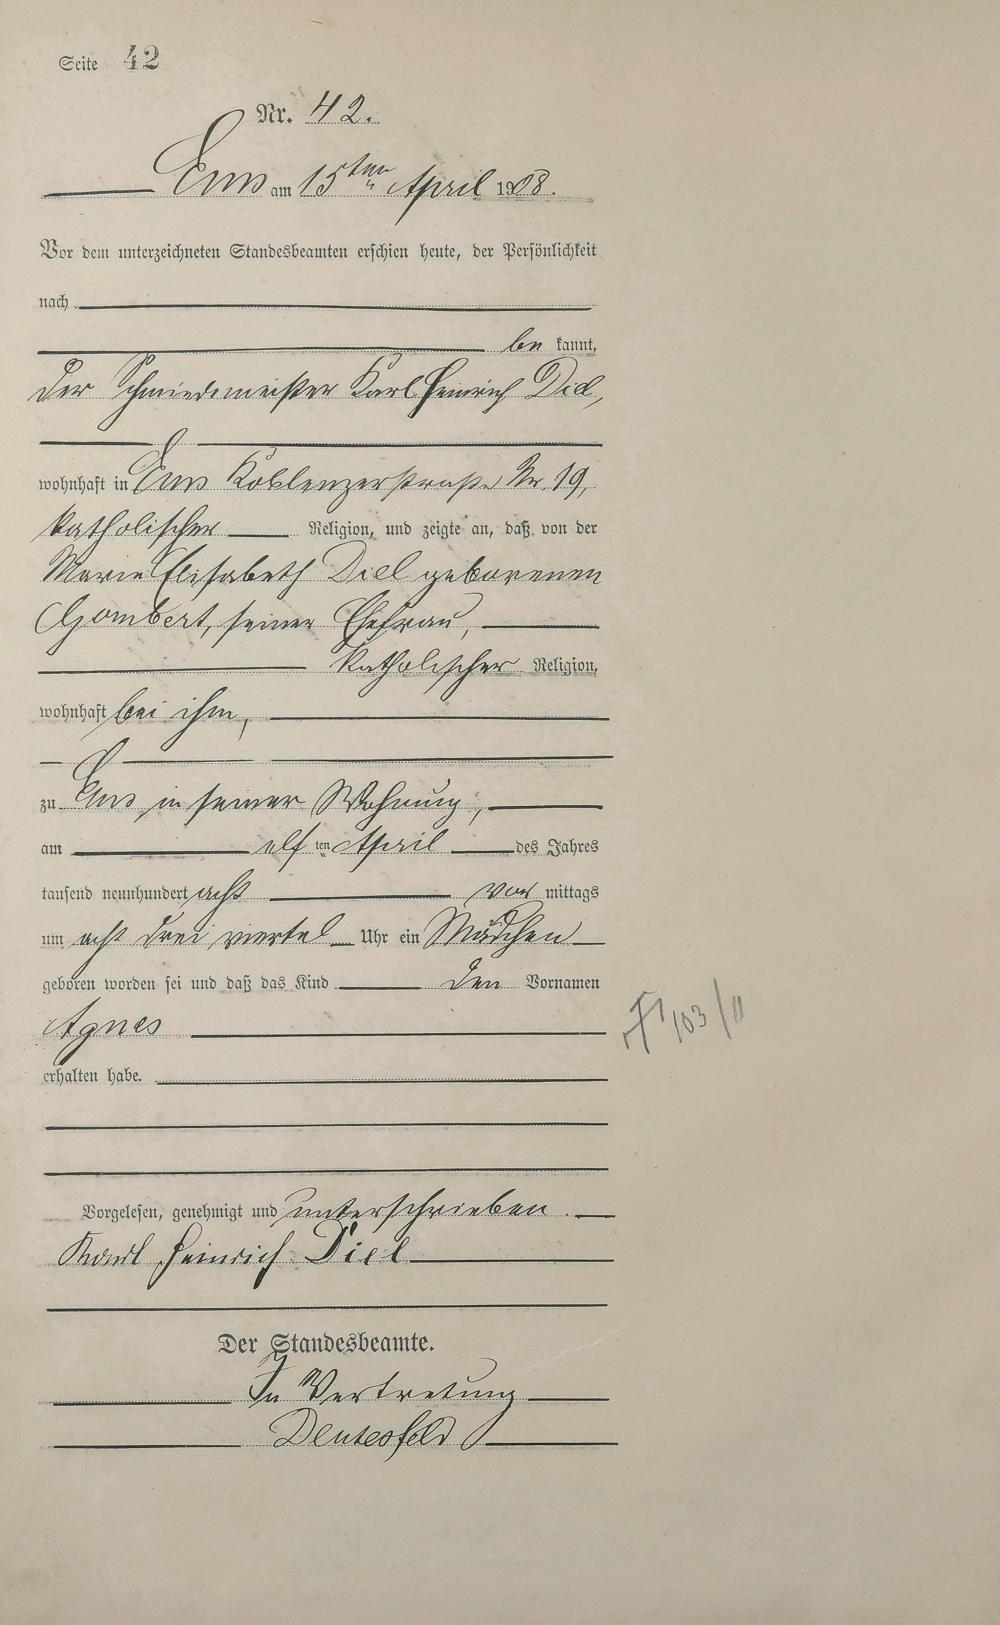 Seite 42
Nr. 42.
Ems am 15ten April 1908.
Vor dem unterzeichneten Standesbeamten erschien heute, der Persönlichkeit
nach
be kannt,
der Schmiedemeister Karl Heinrich Diel,
wohnhaft in Ems Koblenzerstraße Nr. 19,
katholischer Religion, und zeigte an, daß von der
Marie Elisabeth Diel geborenen
Gombert, seiner Ehefrau,
katholischer Religion,
wohnhaft bei ihm,
zu Ems in seiner Wohnung,
am elf ten April des Jahres
tausend neunhundert acht vor mittags
um acht drei viertel Uhr ein Mädchen
geboren worden sei und daß das Kind den Vornamen
Agnes
erhalten habe.
103/11
Vorgelesen, genehmigt und unterschrieben.
Karl Heinrich Diel
Der Standesbeamte.
In Vertretung